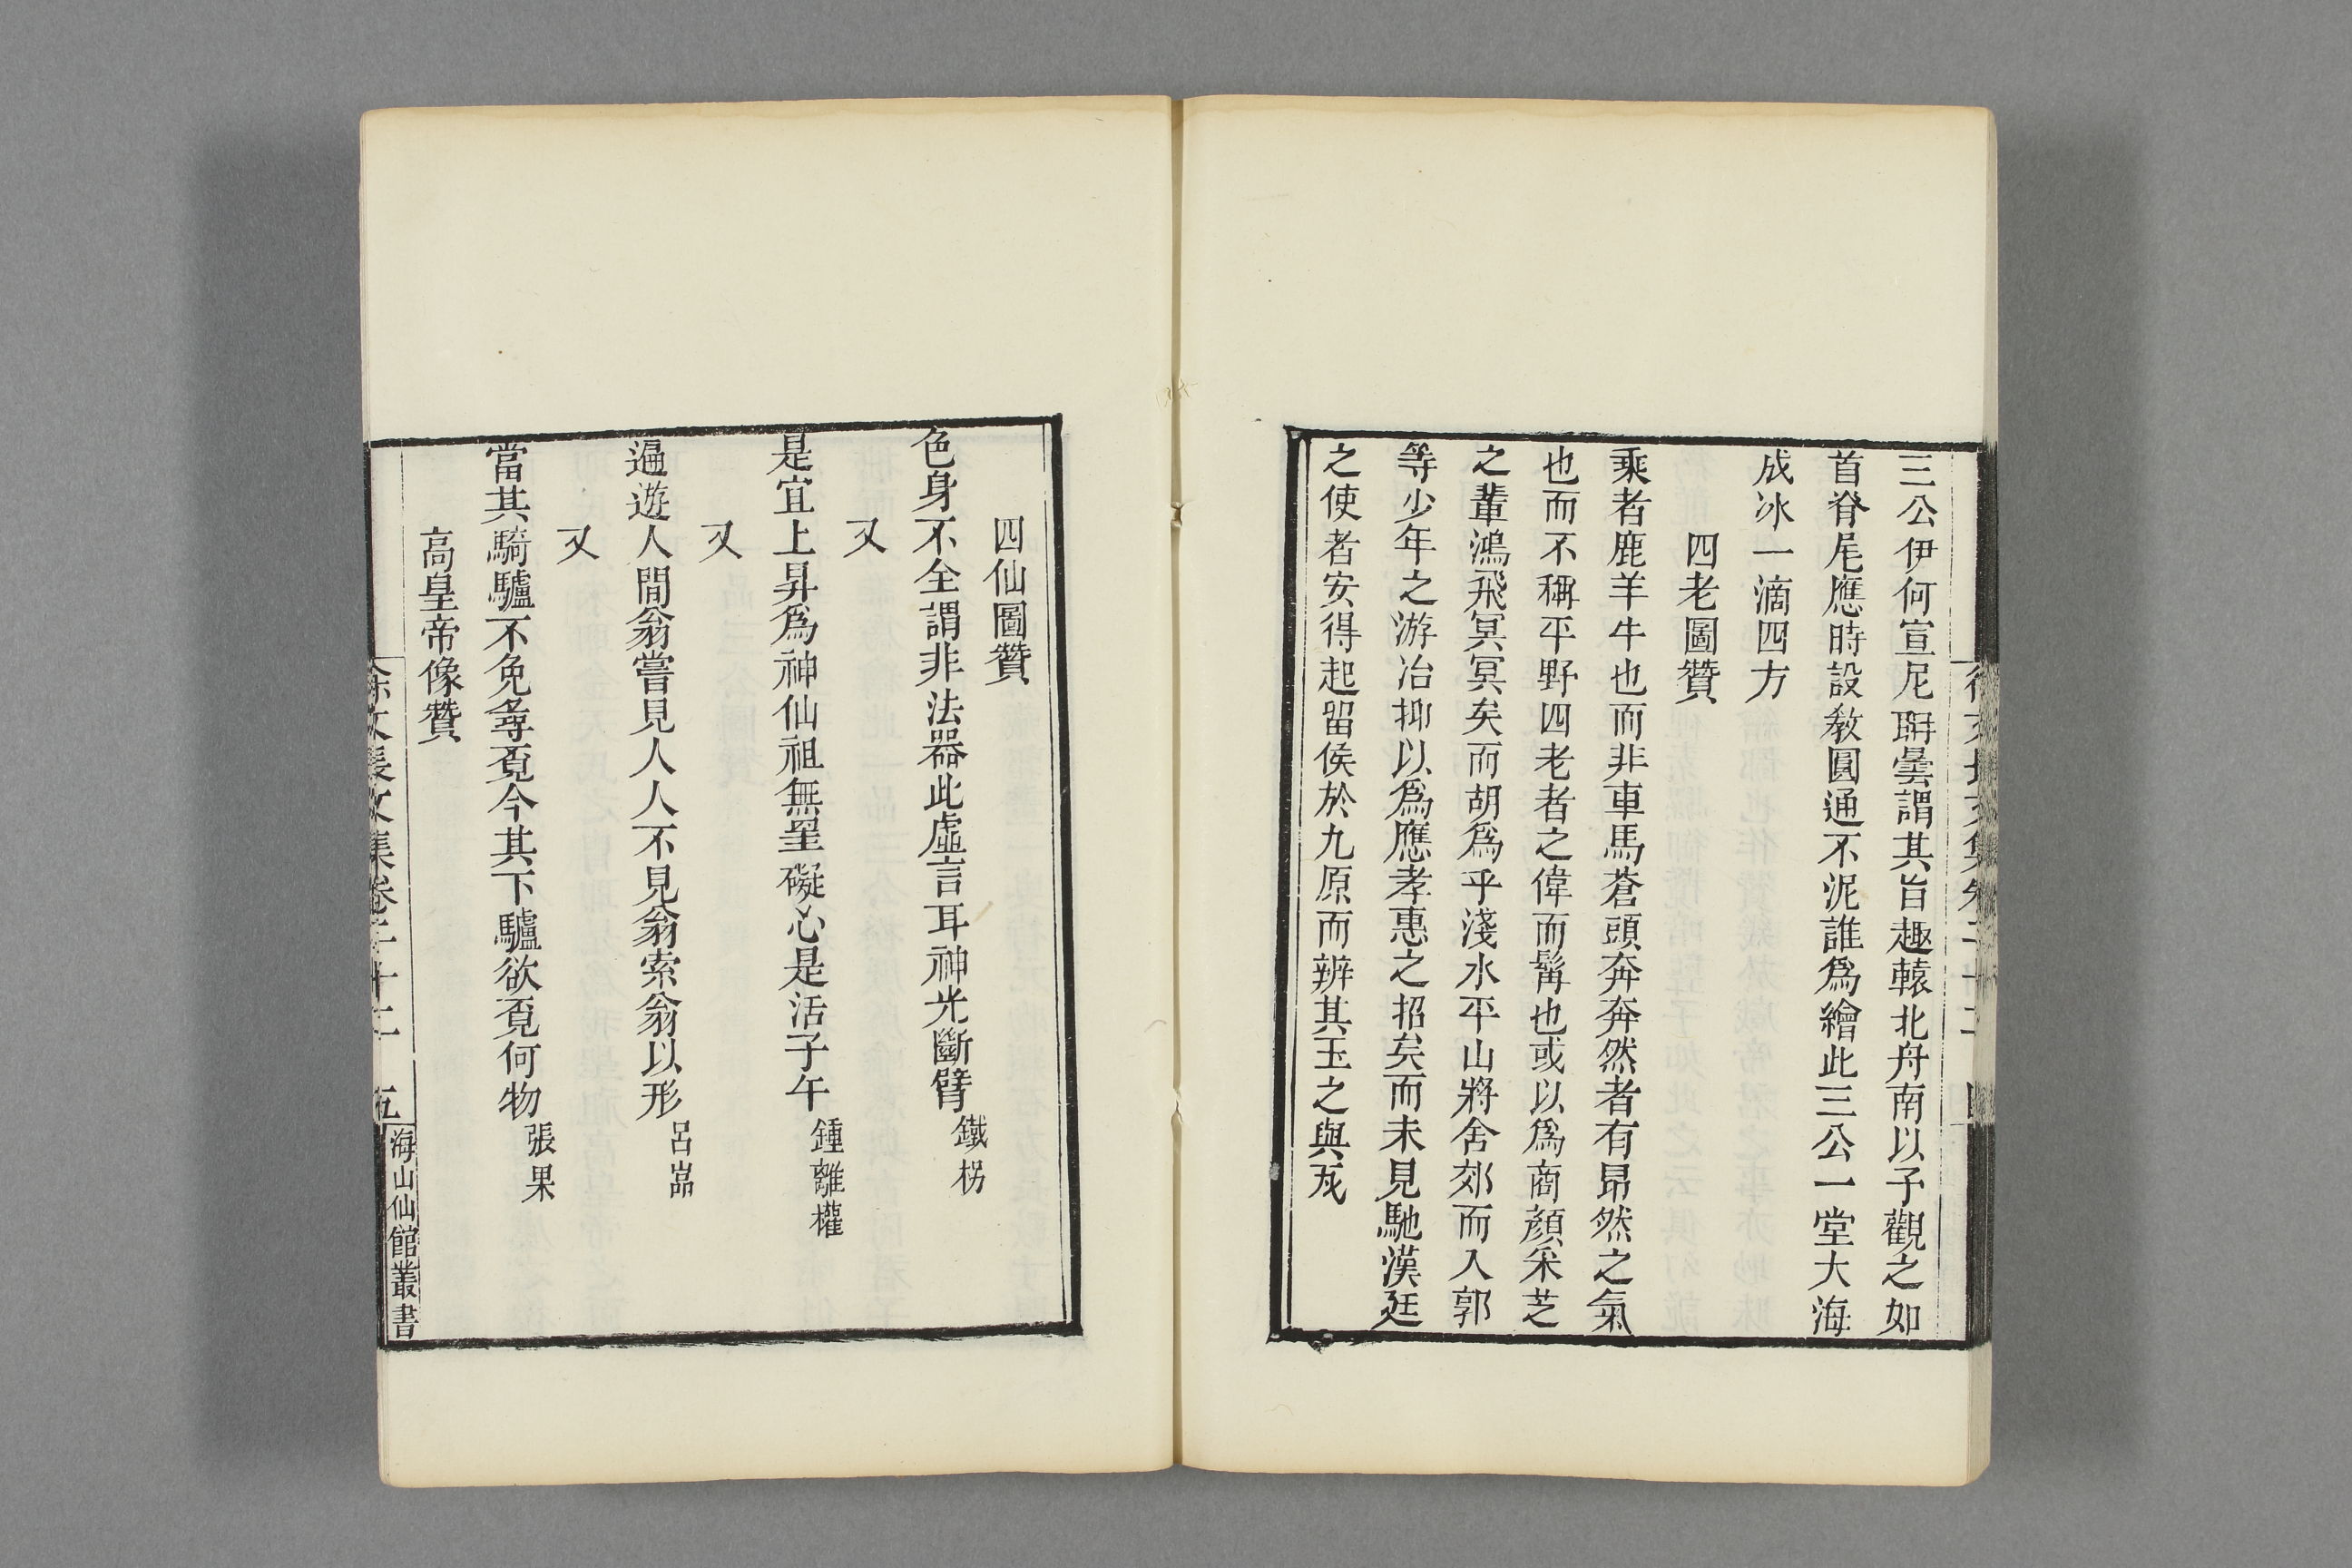 三公伊何宣尼聃曇謂其旨趣轅北舟南以予觀之如
首脊尾應時設教圓通不泥誰爲繪此三公一堂大海
成冰一滴四方
四老圖贊
乘者鹿羊牛也而非車馬蒼頭奔奔然者有昂然之氣
也而不稱平野四老者之偉而髯也或以爲商顏采芝
之輩鴻飛冥冥矣而胡爲乎淺水平山將舍郊而入郭
等少年之游冶抑以爲應孝惠之招矣而未見馳漢廷
之使者安得起留侯於九原而辨其玉之與瓦
四仙圖贊
色身不全謂非法器此虛言耳神光斷臂鐵柺
又
是宜上昇爲神仙祖無罣礙心是活子午鍾離權
又
遍遊人間翁嘗見人人不見翁索翁以形呂嵓
又
當其騎驢不免尋覓今其下驢欲覓何物張果
高皇帝像贊
徐文長文集卷二十二 五 海山仙館叢書